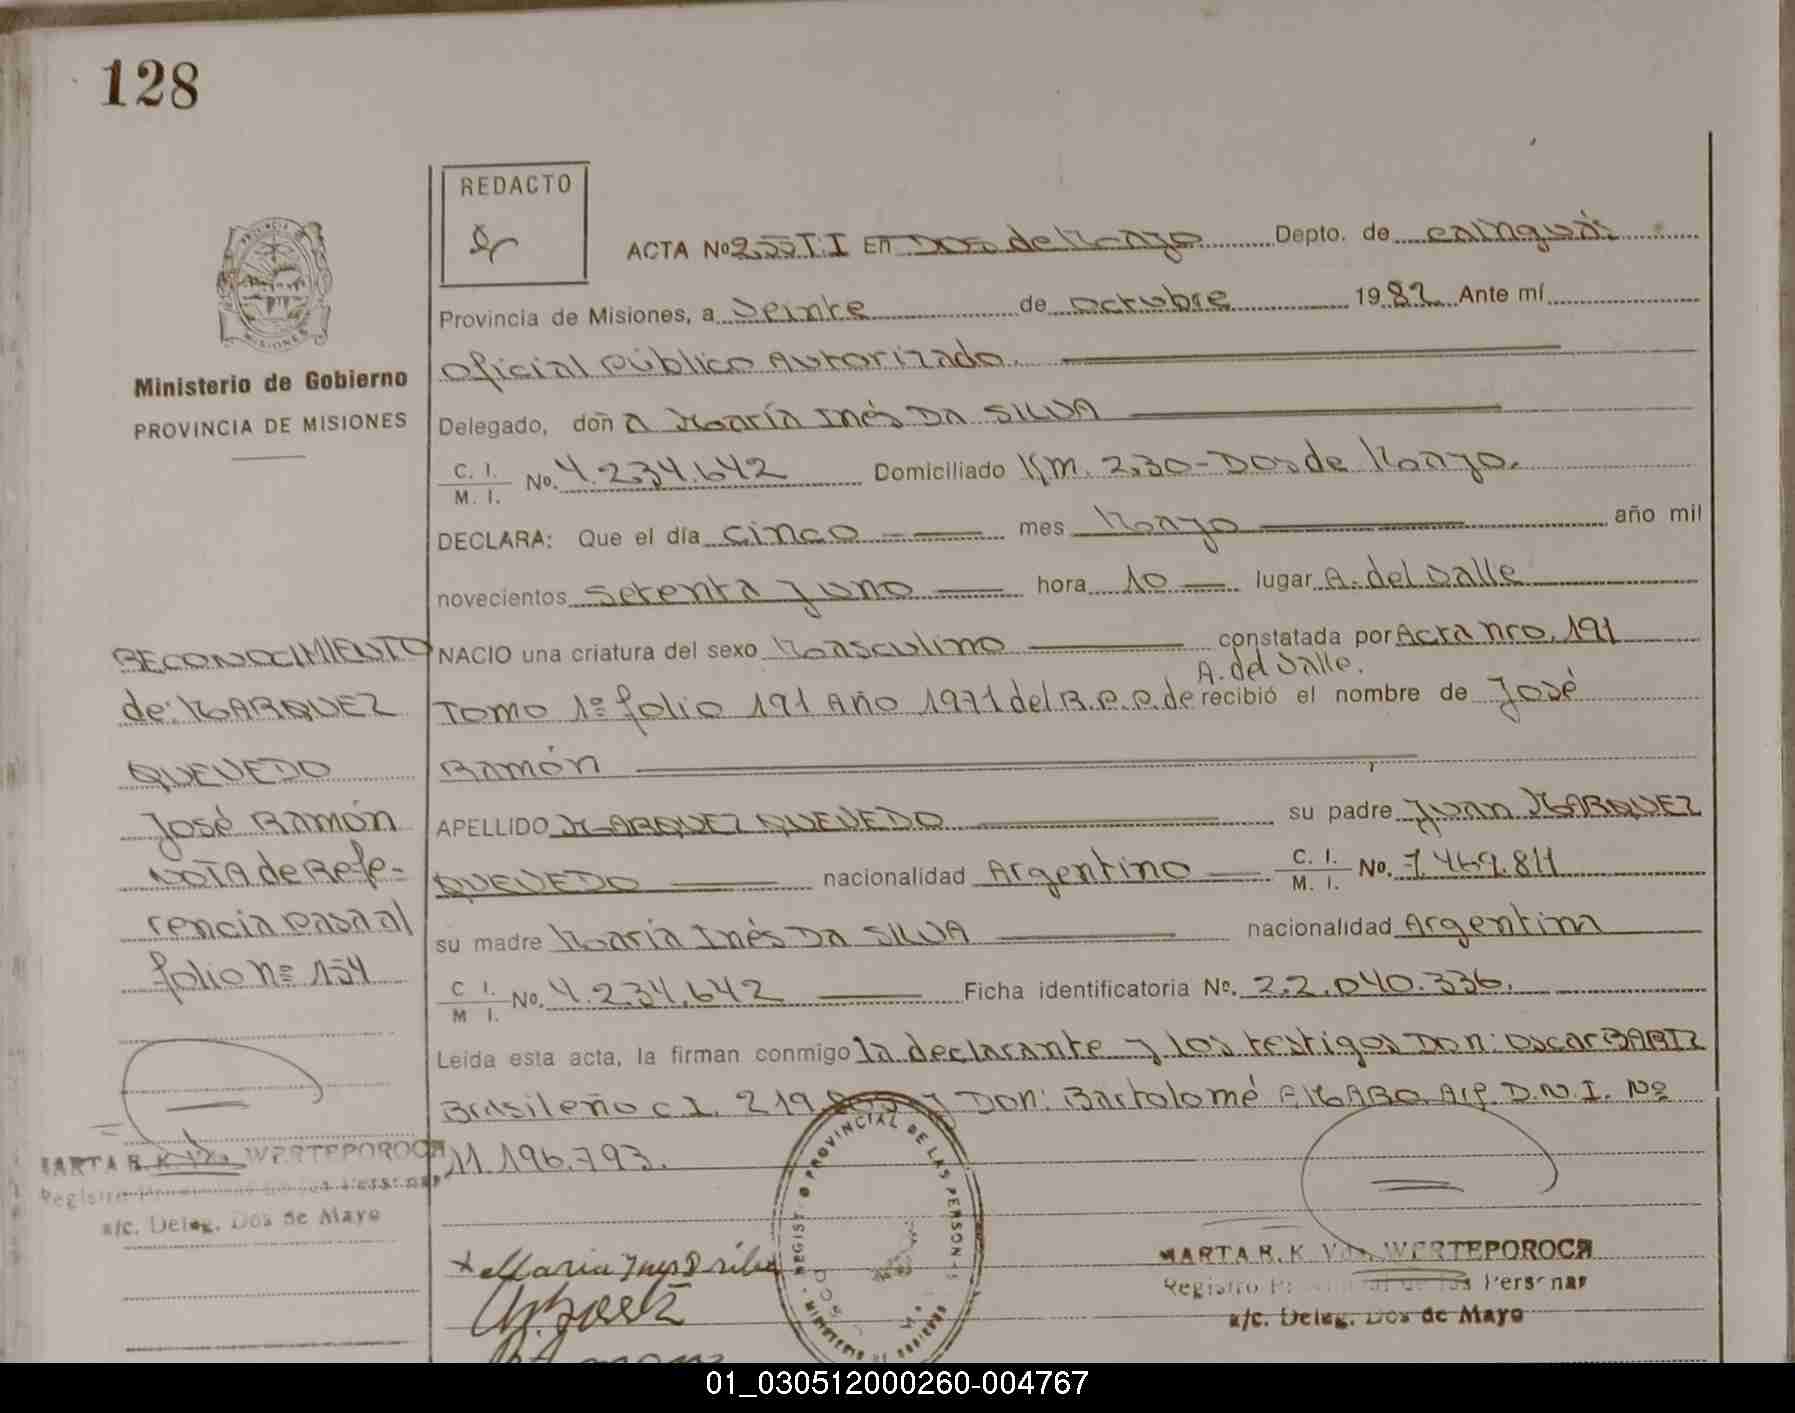 128
REDACTO
ACTA Nº 255 T.I En Dos de Mayo Depto. de cainguás
Provincia de Misiones, a Veinte de octubre 1982 Ante mí
oficial Público Autorizado.
Ministerio de Gobierno
PROVINCIA DE MISIONES
Delegado, doñ a María Inés DA SILVA
C. I.
M. I. No. 4.234.642 Domiciliado Km. 230-Dos de Mayo.
DECLARA: Que el día cinco mes Mayo año mil
novecientos setenta y uno hora 10 lugar A. del Valle
NACIO una criatura del sexo Masculino constatada por Acta nro. 191
A. del Valle.
Tomo 1º folio 191 Año 1971 del R.P.P. de recibió el nombre de José
Ramón
APELLIDO MARQUEZ QUEVEDO su padre Juan MARQUEZ
QUEVEDO nacionalidad Argentino C. I. M. I. No. 7.469.811
su madre María Inés DA SILVA nacionalidad Argentina
C I. M I. No. 4.234.642 Ficha identificatoria No. 22.040.336.
Leída esta acta, la firman conmigo la declarante y los testigos Don: Oscar BARTZ
Brasileño C.I. 219 Don: Bartolomé Arg. D.N.I. Nº
11.196.793.
RECONOCIMIENTO
de: MARQUEZ
QUEVEDO
José Ramón
NOTA de Refe-
rencia Pasa al
folio Nº 154
MARTA R. K. Vda. WERTEPOROCH
Registro Provincial de las Personas
a/c. Deleg. Dos de Mayo
REGISTRO PROVINCIAL DE LAS PERSONAS
MINISTERIO DE GOBIERNO
MARTA R. K. Vda. WERTEPOROCH
Registro Provincial de las Personas
a/c. Deleg. Dos de Mayo
01_030512000260-004767